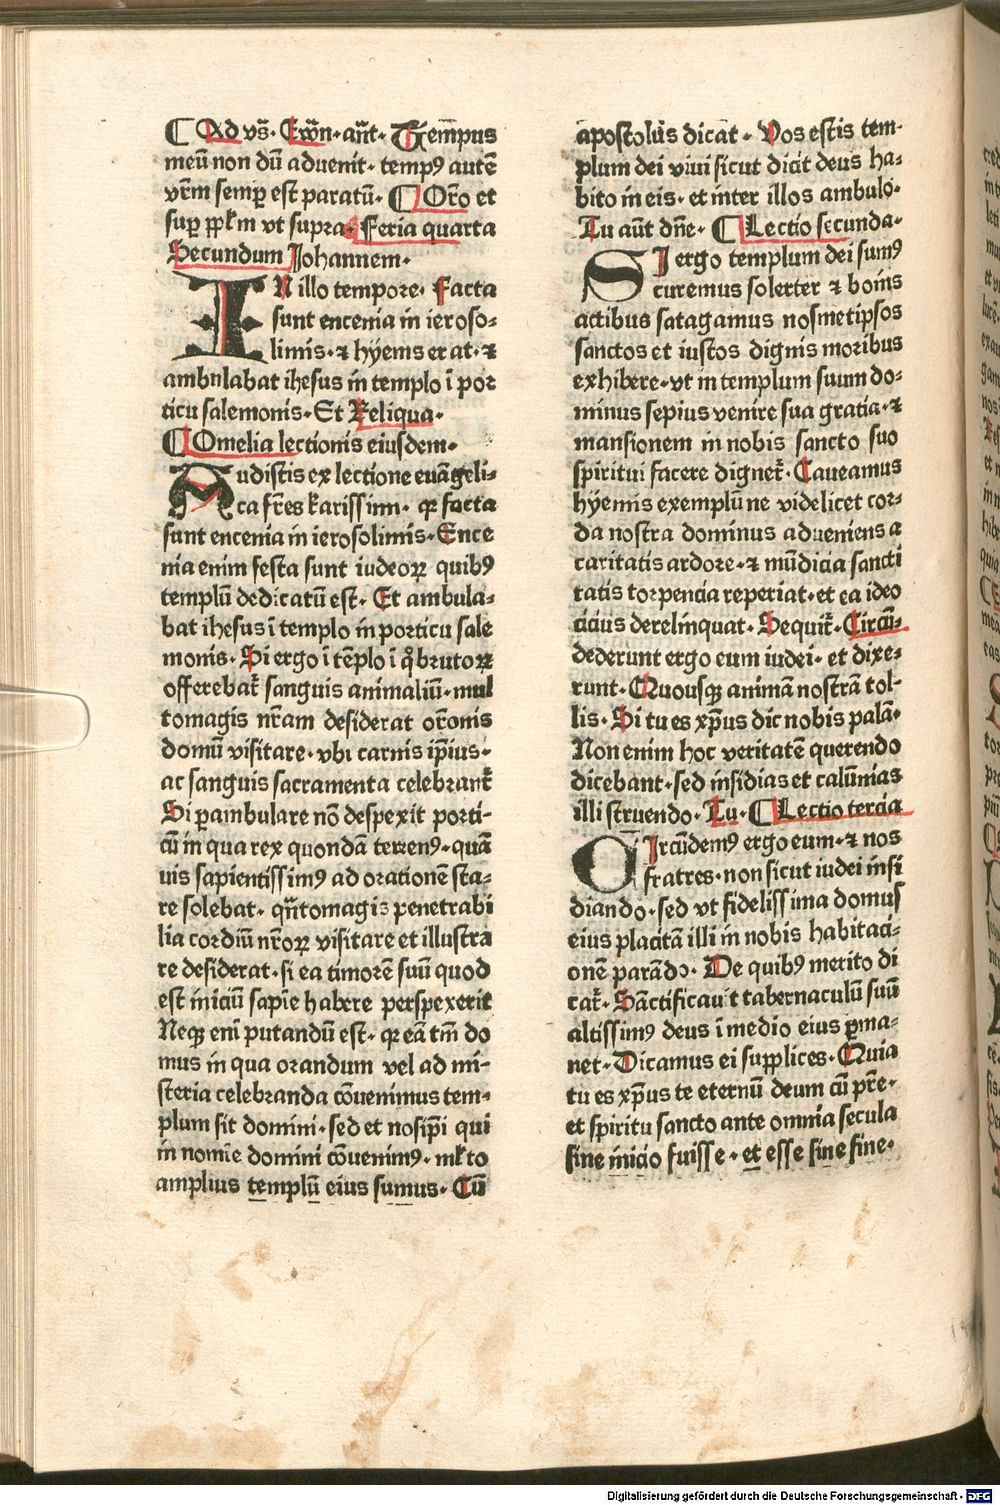 ¶ Ad vs̄. Ewn̄. an̄t. Tem̄pus
meū non dū aduenit. temp⁹ autē
vr̄m semꝑ est paratū. ¶ Or̄o et
suꝑ pp̄lm vt supra. Feria quarta
Secundum Johannem.
IN illo tempore. Facta
sunt encenia in ieroso⸗
limis. ⁊ hyems erat. ⁊
ambulabat ihesus in templo ī por
ticu salemonis. Et Reliqua.
¶ Omelia lectionis eiusdem.
Audistis ex lectione euāgeli⸗
ca fr̄es karissimi. ꝙ facta
sunt encenia in ierosolimis. Ence
nia enim festa sunt iudeoꝝ quib⁹
templū dedicatū est. Et ambula⸗
bat ihesus ī templo in porticu sale
monis. Si ergo ī tēplo ī q̊ brutoꝝ
offerebat̄ sanguis animaliū. mul
tomagis nr̄am desiderat or̄onis
domū visitare. vbi carnis ip̄ius.
ac sanguis sacramenta celebrant̄
Si ꝑambulare nō despexit porti⸗
cū in qua rex quondā terren⁹. quā
uis sapientissim⁹ ad orationē sta⸗
re solebat. qn̄tomagis penetrabi
lia cordiū nr̄oꝝ visitare et illustra
re desiderat. si ea timorē suū quod
est iniciū sapīe habere perspexerit
Neqꝫ enī putandū est. ꝙ eā tm̄ do
mus in qua orandum vel ad mi⸗
steria celebranda cōuenimus tem⸗
plum sit domini. sed et nosip̄i qui
in nomīe domini cōuenim⁹. ml̄to
amplius templū eius sumus. Cū
apostolus dicat. Vos estis tem⸗
plum dei viui sicut dicit deus ha⸗
bito in eis. et inter illos ambulo.
Tu aūt dn̄e. ¶ Lectio secunda.
SI ergo templum dei sum⁹
curemus solerter ⁊ bonis
actibus satagamus nosmetipsos
sanctos et iustos dignis moribus
exhibere. vt in templum suum do⸗
minus sepius venire sua gratia. ⁊
mansionem in nobis sancto suo
spiritui facere dignet̄. Caueamus
hyemis exemplū ne videlicet cor⸗
da nostra dominus adueniens a
caritatis ardore. ⁊ mūdicia sancti
tatis torpencia reperiat. et ea ideo
cicius derelinquat. Sequit̄. Circū⸗
dederunt ergo eum iudei. et dixe⸗
runt. Quousqꝫ animā nostrā tol⸗
lis. Si tu es xp̄us dic nobis palā.
Non enim hoc veritatē querendo
dicebant. sed insidias et calūnias
illi struendo. Tu. ¶ Lectio tercia
CIrcūdem⁹ ergo eum. ⁊ nos
fratres. non sicut iudei insi
diando. sed vt fidelissima domus
eius placitā illi in nobis habitaci⸗
onē parādo. De quib⁹ merito di
cat̄. Sāctificauit tabernaculū suū
altissim⁹ deus ī medio eius ꝑma⸗
net. Dicamus ei supplices. Quia
tu es xp̄us te eternū deum cū pr̄e.
et spiritu sancto ante omnia secula
sine inicio fuisse. et esse sine fine.
Digitalisierung gefördert durch die Deutsche Forschungsgemeinschaft - DFG